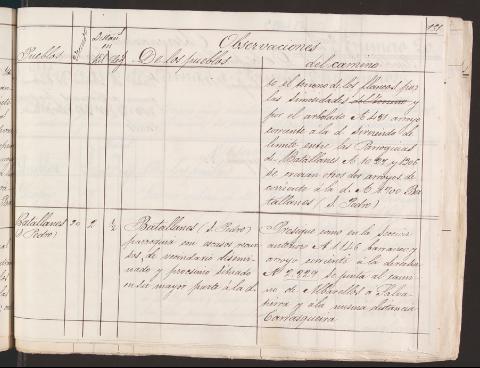 121
Observaciones
Pueblos
De los pueblos
del camino
te el terreno de los flancos por
las sinuosidades del terreno y
por el arbolado A 481 arroyo
corriente á la d. sirviendo de
limite entre las Parroquias
de Batallanes A 1027 y 1306
se cruzan otros dos arroyos de
corriente á la d. A 1700 Ba
tallanes (S. Pedro)
Batallanes
(S. Pedro)
20
2
½
Batallanes (S. Pedro)
parroquia con escasos recur
sos, de vecindario disemi
nado y proximo situado
en su mayor parte á la d.
Prosigue como en la seccion
anterior A 1146 barranco y
arroyo corriente á la derecha
A 2.229 se junta al cami
no de Albarellos á Salva
tierra y á la misma distancia
Carrasqueira